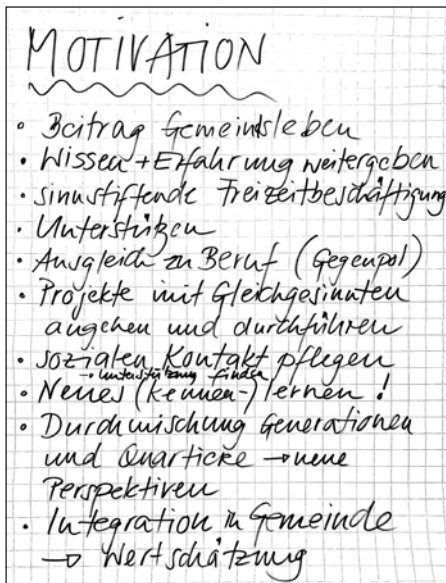 MOTIVATION
• Beitrag Gemeindsleben
• Wissen + Erfahrung weitergeben
• sinnstiftende Freizeitbeschäftigung
• Unterstützen
• Ausgleich zu Beruf (Gegenpol)
• Projekte mit Gleichgesinnten
angehen und durchführen
• sozialen Kontakt pflegen
→ Unterstützung finden
• Neues (kennen-) lernen!
• Durchmischung Generationen
und Quartiere → neue
Perspektiven
• Integration in Gemeinde
→ Wertschätzung